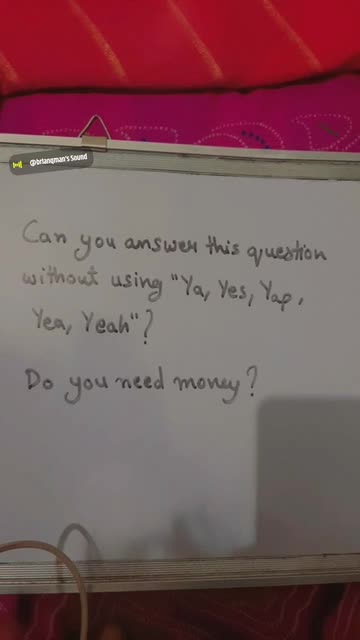 @brianqman's Sound
Can you answer this question
without using "Ya, Yes, Yap,
Yea, Yeah"?
Do you need money?